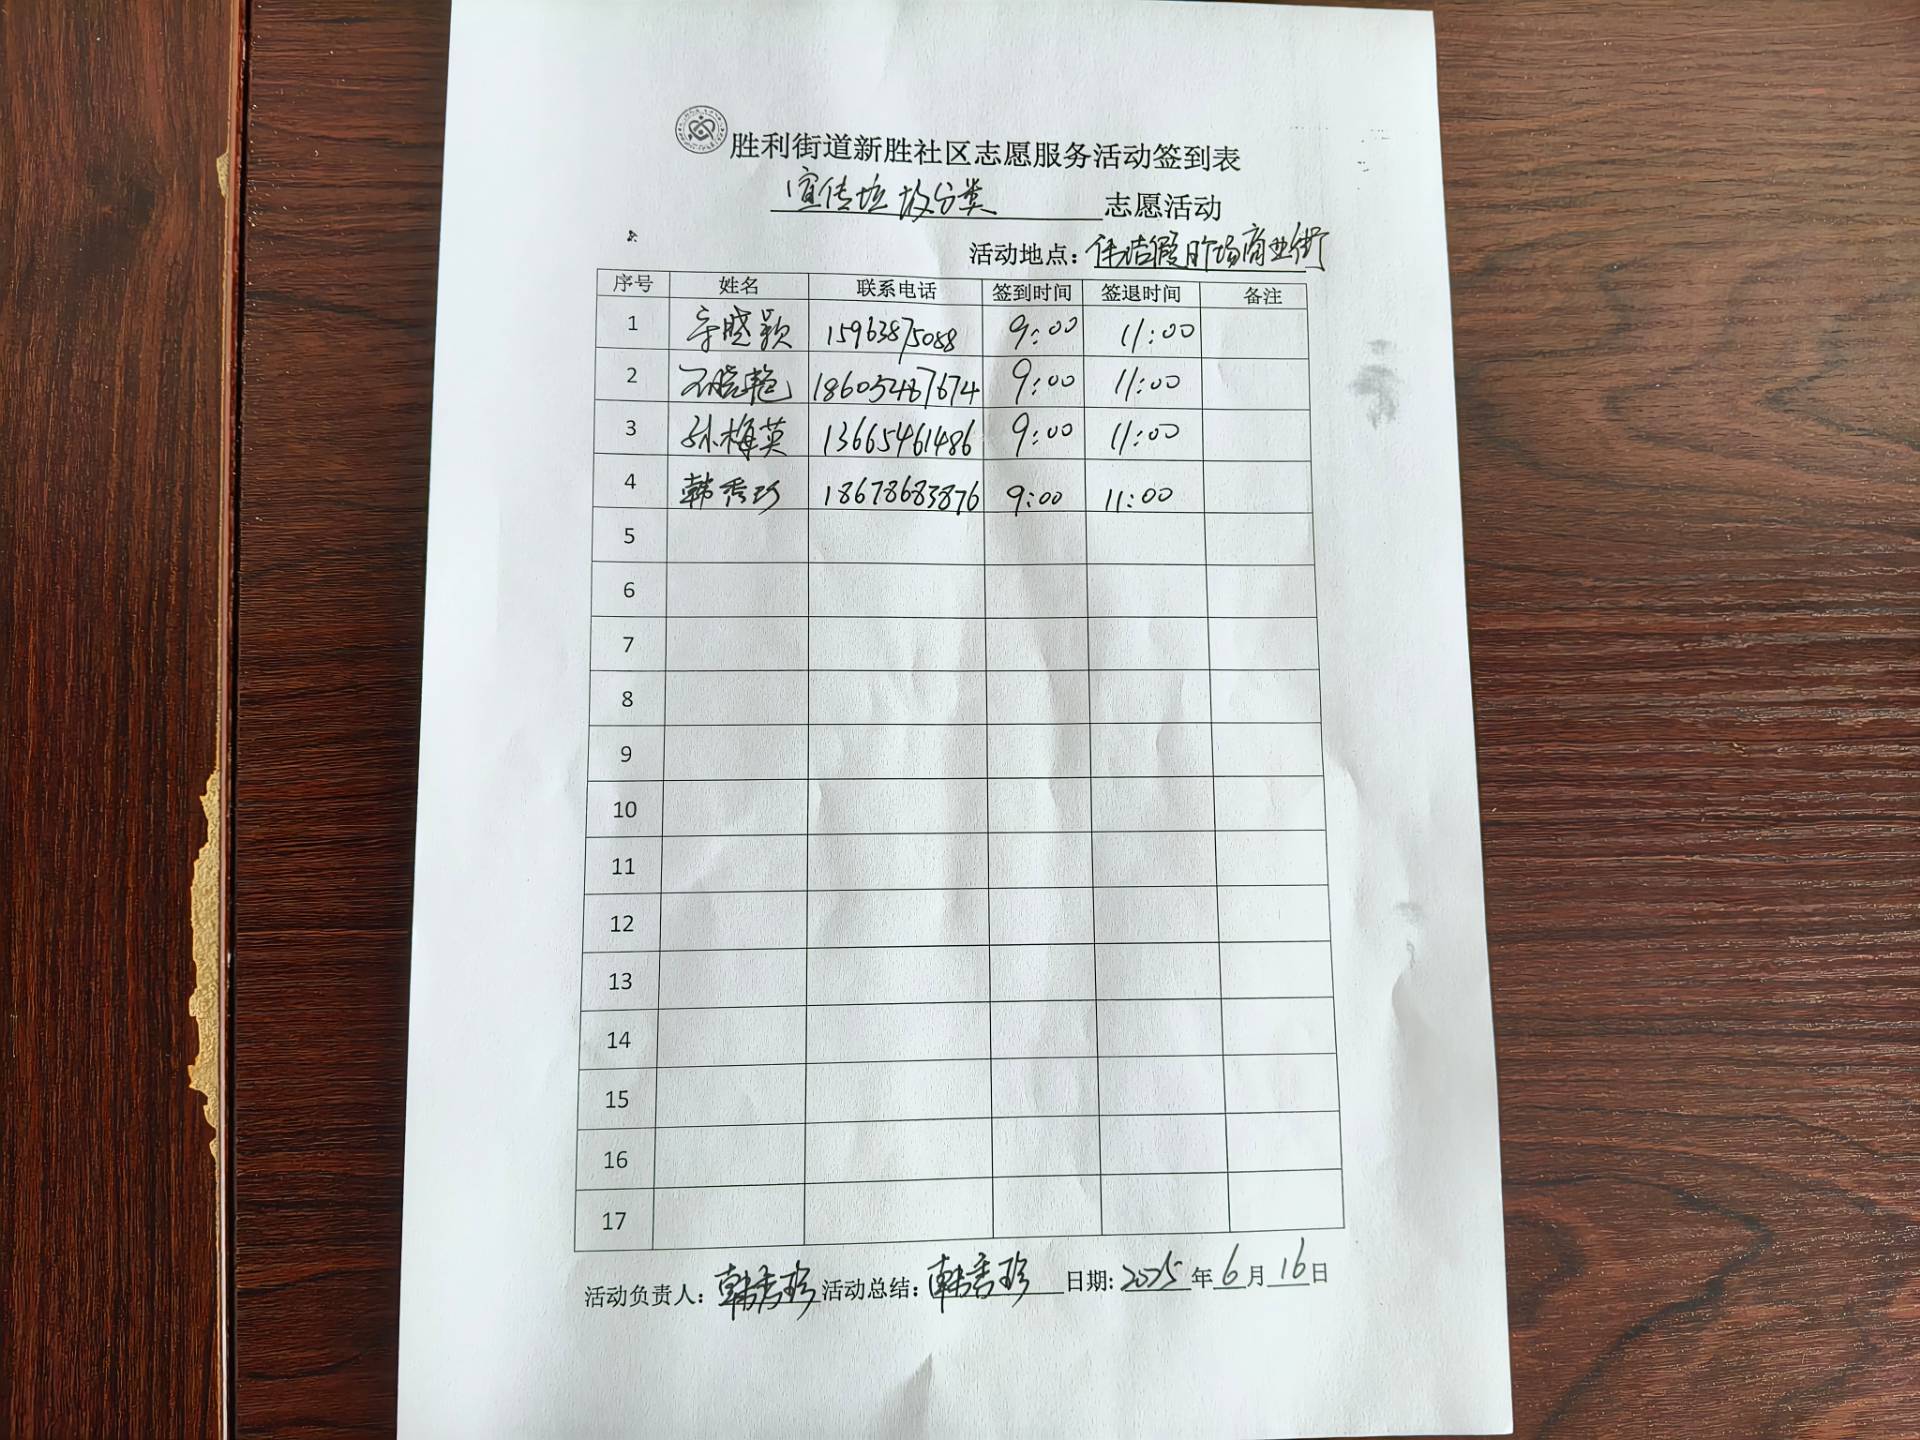 胜利街道新胜社区志愿服务活动签到表
宣传垃圾分类 志愿活动
活动地点：佳洁假日广场商业街
序号 姓名 联系电话 签到时间 签退时间 备注
1 辛晓颖 15963875088 9:00 11:00
2 石晓艳 18605467674 9:00 11:00
3 孙梅英 13665461486 9:00 11:00
4 韩秀珍 18678683876 9:00 11:00
5
6
7
8
9
10
11
12
13
14
15
16
17
活动负责人：韩秀珍 活动总结：韩秀珍 日期：2025年6月16日